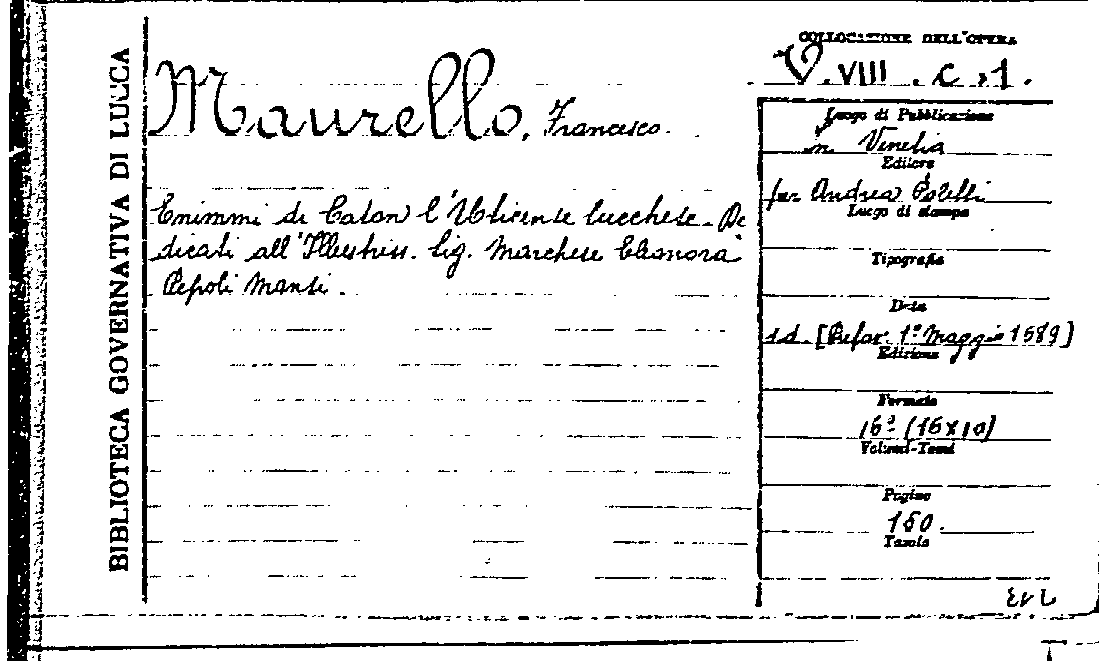 BIBLIOTECA GOVERNATIVA DI LUCCA
COLLOCAZIONE DELL'OPERA
V. VIII. C. 1.
Maurello, Francesco.
Enimmi di Caton l'Uticense lucchese. De
dicati all'Illustriss. Sig. Marchese Eleonora
Pepoli Mansi.
Luogo di Pubblicazione
in Venetia
Editore
per Andrea Poletti
Luogo di stampa
Tipografia
Data
s.d. [Prefaz. 1º Maggio 1689]
Edizione
Formato
16º (16x10)
Volumi-Tomi
Pagine
160.
Tavole